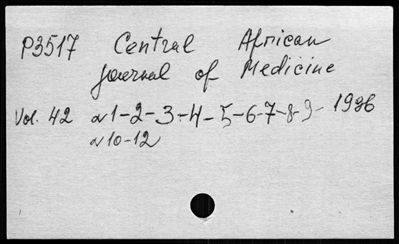 P3517 Central African
Journal of Medicine
Vol. 42 N1-2-3-4-5-6-7-8-9- 1996
N10-12